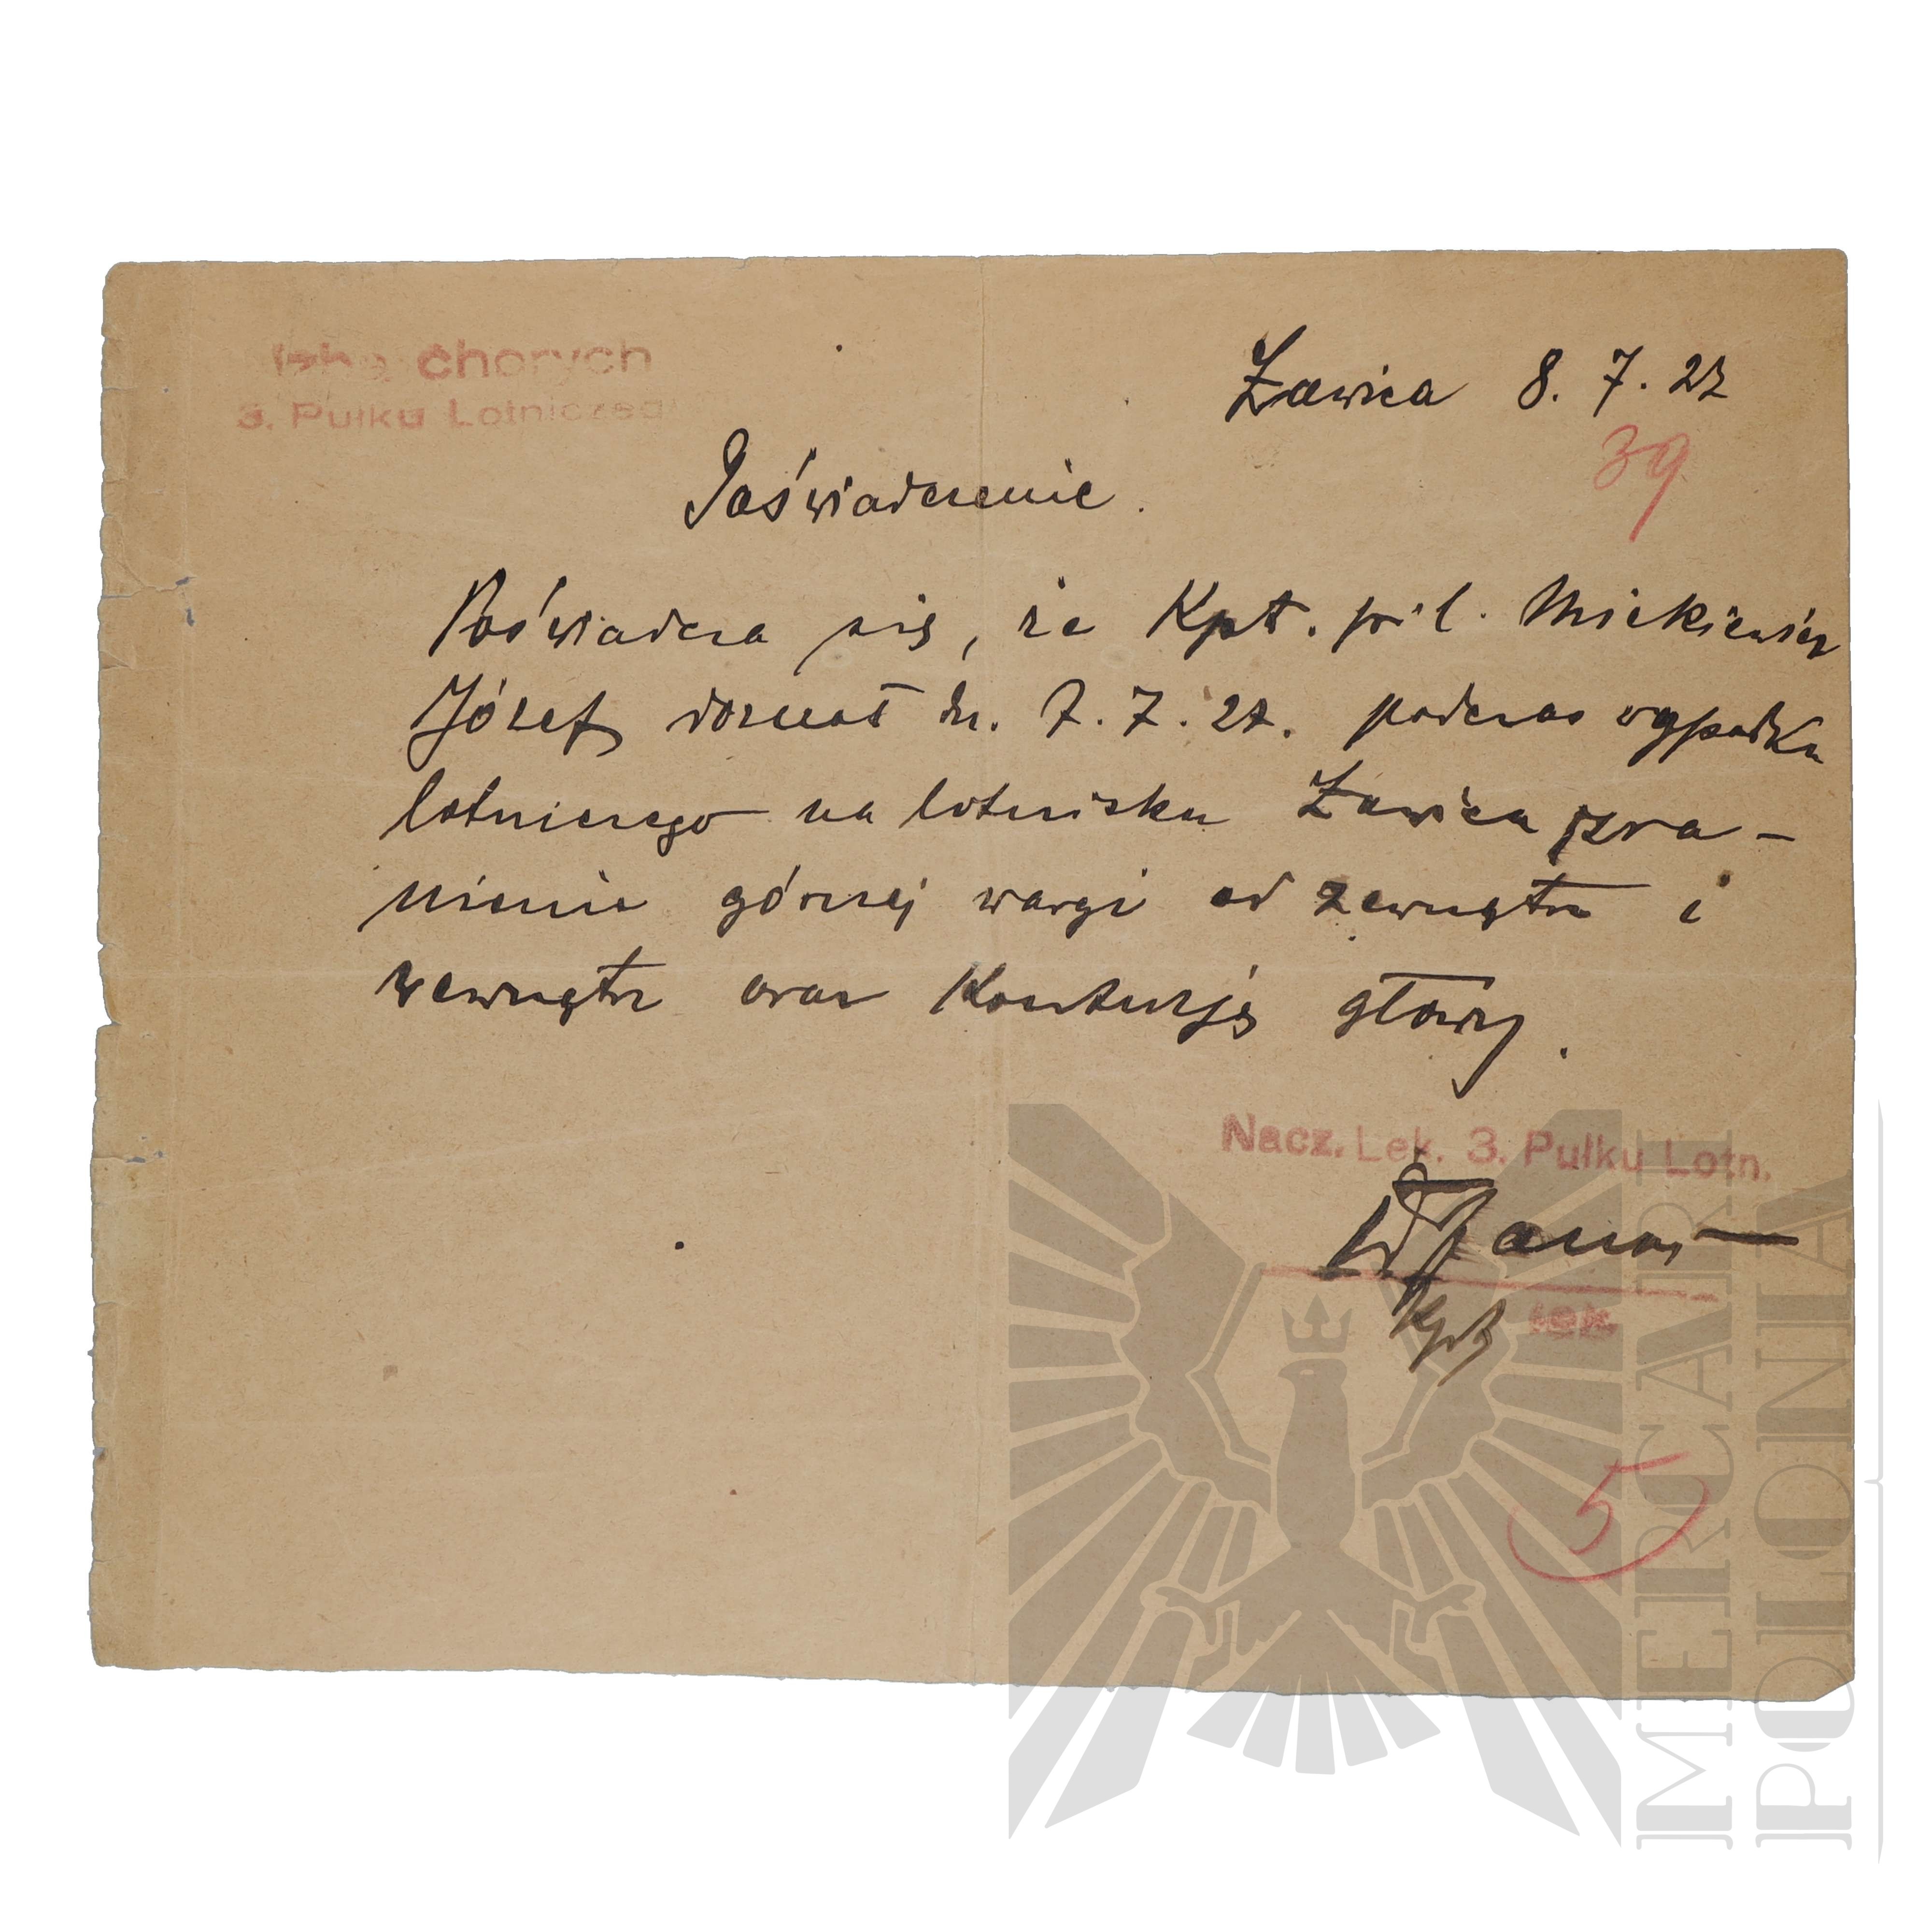 Izba chorych
3. Pułku Lotniczego
Ławica 8. 7. 27
39
Poświadczenie.
Poświadcza się, że Kpt. pil. Mickiewicz
Józef doznał dn. 7. 7. 27. podczas wypadku
lotniczego na lotnisku Ławica zra-
nienie górnej wargi od zewnątrz i
wewnątrz oraz Kontuzję głowy.
Nacz. Lek. 3. Pułku Lotn.
Kpt lek.
5
MERCARI
POLONIA